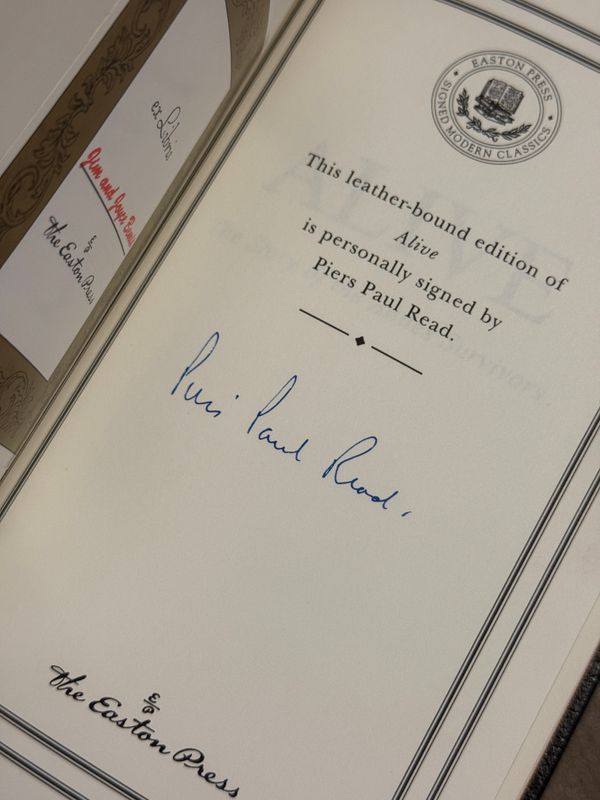 ex Libris
Jim and Joye
E/P
the Easton Press
EASTON PRESS
SIGNED MODERN CLASSICS
This leather-bound edition of
Alive
is personally signed by
Piers Paul Read.
Piers Paul Read.
E/P
The Easton Press
ALIVE
survivors.